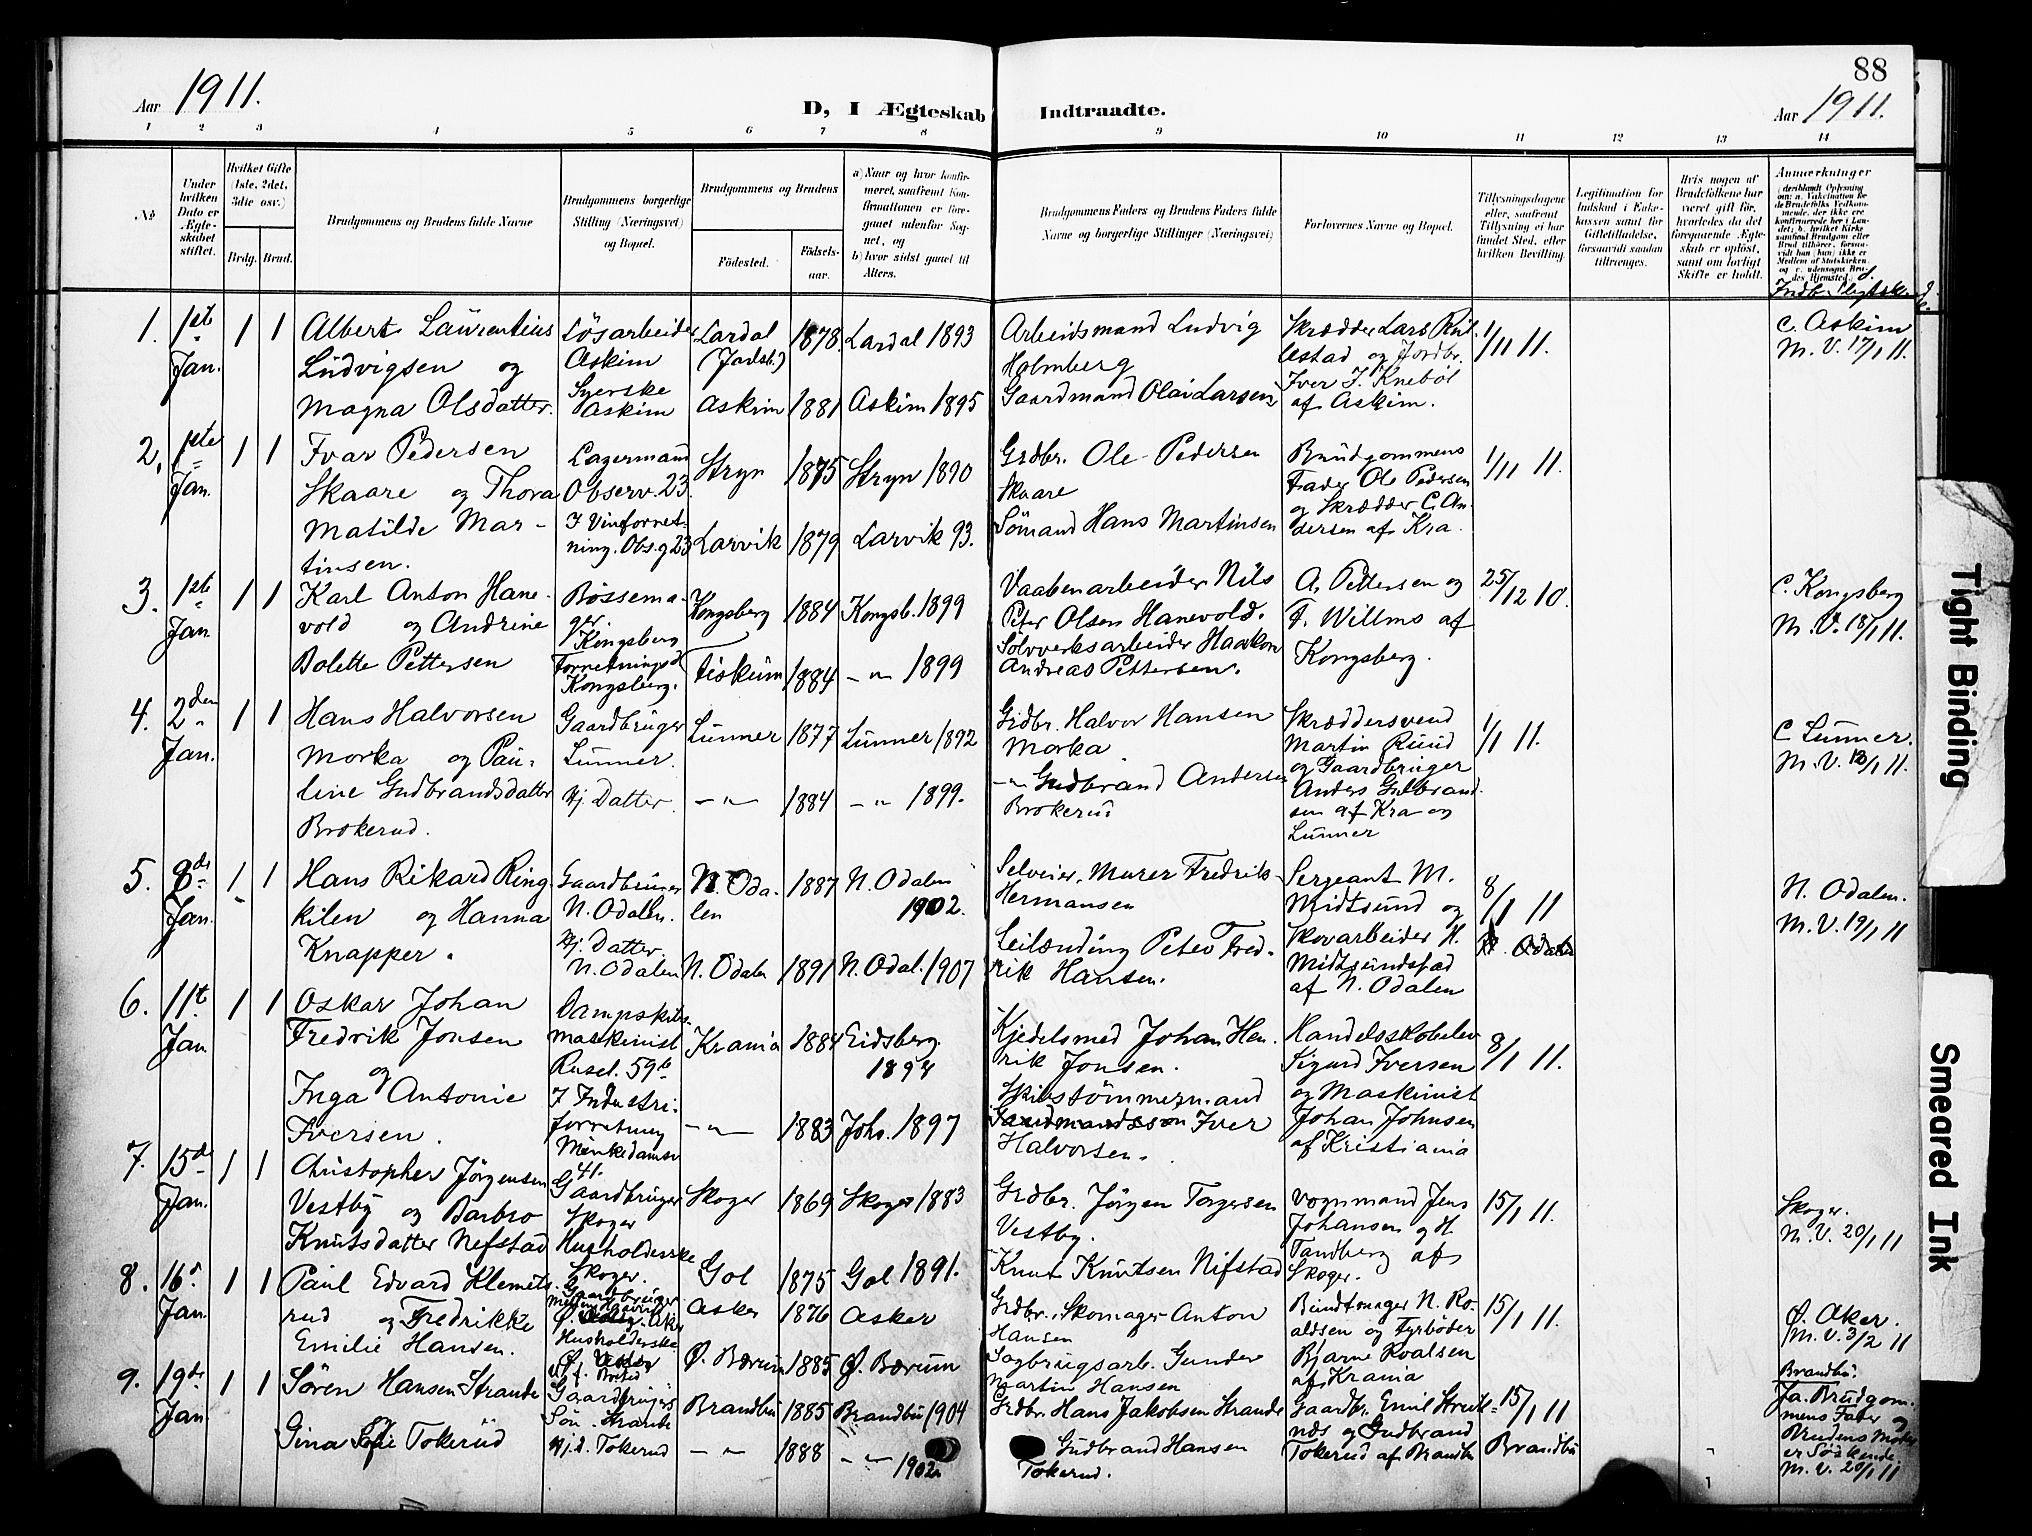 88
Aar 1911.
D, I Ægteskab Indtraadte.
Aar 1911.
1 2 3 4 5 6 7 8 9 10 11 12 13 14
No
Under hvilken Dato er Ægteskabet stiftet.
Hvilket Gifte (1ste, 2det, 3die osv.)
Brdg. Brud.
Brudgommens og Brudens fulde Navne
Brudgommens borgerlige Stilling (Næringsvei) og Bopæl.
Brudgommens og Brudens
Födested.
Födselsaar.
a) Naar og hvor konfirmeret, saafremt Konfirmationen er foregaaet udenfor Sognet, og
b) hvor sidst gaaet til Alters.
Brudgommens Faders og Brudens Faders fulde Navne og borgerlige Stillinger (Næringsvei)
Forlovernes Navne og Bopæl.
Tillysningsdagene eller, saafremt Tillysning ei har fundet Sted, efter hvilken Bevilling.
Legitimation for Indskud i Enkekassen samt for Giftetilladelse, forsaavidt saadan tiltrænges.
Hvis nogen af Brudefolkene har været gift før, hvorledes da det foregaaende Ægteskab er oplöst, samt om lovligt Skifte er holdt.
Anmærkninger
1. 1ste Jan. 1 1
Albert Laurentius
Ludvigsen og
Magna Olsdatter.
Løsarbeider
Askim
Syerske
Askim
Lardal
(Jarlsb.)
Askim
1878.
1881
Lardal 1893
Askim 1895
Arbeidsmand Ludvig
Holmberg
Gaardmand Olai Larsen
Skrædder Lars
og Jordbr.
Iver J. Knebøl
af Askim.
1/1 11.
C. Askim
M. V. 17/1 11.
2. 1ste Jan. 1 1
Ivar Pedersen
Skaare og Thora
Matilde Mar-
tinsen.
Lagermand
Observ. 23.
I Vinforret-
ning. Obs.g 23
Stryn
Larvik
1875
1879
Stryn 1890
Larvik 93.
Grdbr. Ole Pedersen
Skaare
Sømand Hans Martinsen
Brudgommens
Fader Ole Pedersen
og Skrædder C. An-
dersen af Kra.
1/1 11.
3. 1ste Jan. 1 1
Karl Anton Hane-
vold og Andrine
Bolette Pettersen
Bøssema-
ger.
Kongsberg
Forretningsd
Kongsberg.
Kongsberg
Fiskum
1884
1884
Kongsb. 1899
-"- 1899
Vaabenarbeider Nils
Peter Olsen Hanevold.
Sølvverksarbeider Haakon
Andreas Pettersen.
A. Pettersen og
F. Willms af
Kongsberg.
25/12 10.
C. Kongsberg
M. V. 18/1 11.
4. 2den Jan. 1 1
Hans Halvorsen
Morka og Pau-
line Gudbrandsdatter
Brokerud.
Gaardbruger
Lunner.
Hj. Datter.
Lunner
-"-
1877
1884
Lunner 1892
-"- 1899.
Grdbr. Halvor Hansen
Morka
-"- Gudbrand Andersen
Brokerud
Skræddersvend
Martin Ruud
og Gaardbruger
Anders Gulbrand-
sen af Kra og
Lunner
1/1 11.
C Lunner.
M. V. 18/1 11.
5. 8de Jan. 1 1
Hans Rikard Ring
kilen og Hanna
Knapper.
Gaardbruger
N. Odalen.
Hj. Datter
N. Odalen
N. Oda-
len
N. Odalen
1887
1891
N. Odalen
1902.
N. Odal. 1907
Selveier, Murer Fredrik
Hermansen
Leilænding Peter Fred-
rik Hansen.
Sergeant M.
Midtsund og
Skovarbeider H.
Midtsundstad
af N. Odalen
8/1 11
N. Odalen
N. Odalen.
M. V. 19/1 11
6. 11t Jan 1 1
Oskar Johan
Fredrik Jonsen
og
Inga Antonie
Iversen.
Dampskibs-
maskinist
Rusel. 59b
I Industri-
forretning
Munkedamsv
41.
Krania
-"-
1884
1883
Eidsberg
1894
Johs. 1897
Kjedelsmed Johan Hen-
rik Jonsen.
Skibstømmermand
Iver
Halvorsen.
Sigurd Iversen
og Maskinist
Johan Johnsen
af Kristiania
8/1 11.
7. 15de Jan. 1 1
Christopher Jørgensen
Vestby og Barbro
Knutsdatter Nefstad
Gaardbruger
Skoger
Husholderske
Skoger.
Skoger
Gol
1869
1875
Skoger 1883
Gol 1891.
Grdbr. Jørgen Torgersen
Vestby.
Knut Knutsen Nifstad
Vognmand Jens
Johansen og H.
Tandberg af
Skoger.
15/1 11.
Skoger.
M. V. 20/1 11
8. 16s Jan. 1 1
Paul Edvard Klemets-
rud og Fredrikke
Emilie Hansen.
Gaardbruger
Husholderske
Asker
Ø. Bærum
1876
1885
Asker
Ø. Bærum
Grdbr. Skomager Anton
Hansen
Sagbrugsarb. Gunder
Martin Hansen
Buntmager N. Ro-
aldsen og Fyrbøder
Bjarne Roalsen
af Krania
15/1 11.
Ø. Aker.
M. V. 3/2 11
9. 19de Jan. 1 1
Søren Hansen Strande
Gina Sofie Tokerud
Gaardbruger
Søn. Strande
Hj.d. Tokerud
Brandbu
-"-
1885
1888
Brandbu 1904
-"- 1902
Grdbr. Hans Jakobsen Strande
Gudbrand Hansen
Tokerud.
Gaardbr. Emil Strute-
nds og Gudbrand
Tokerud af Brandbu
15/1 11
Brandbu
Brandbu.
Ja. Brudgom-
mens Fader
Brudens Moder
er Søskende.
M. V. 20/1 11
Tight Binding
Smeared Ink